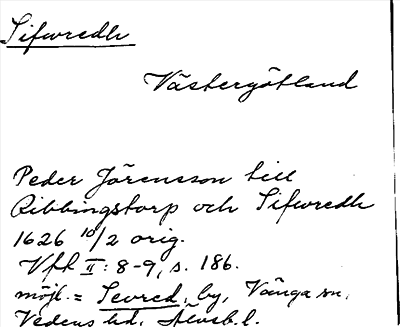 Sifwredh
Västergötland
Peder Jörensson till
Ribbingstorp och Sifwredh
1626 10/2 orig.
Vfft II: 8-9, s. 186.
möjl. = Sevred, by, Vånga sn,
Vedens hd, Älvsb. l.